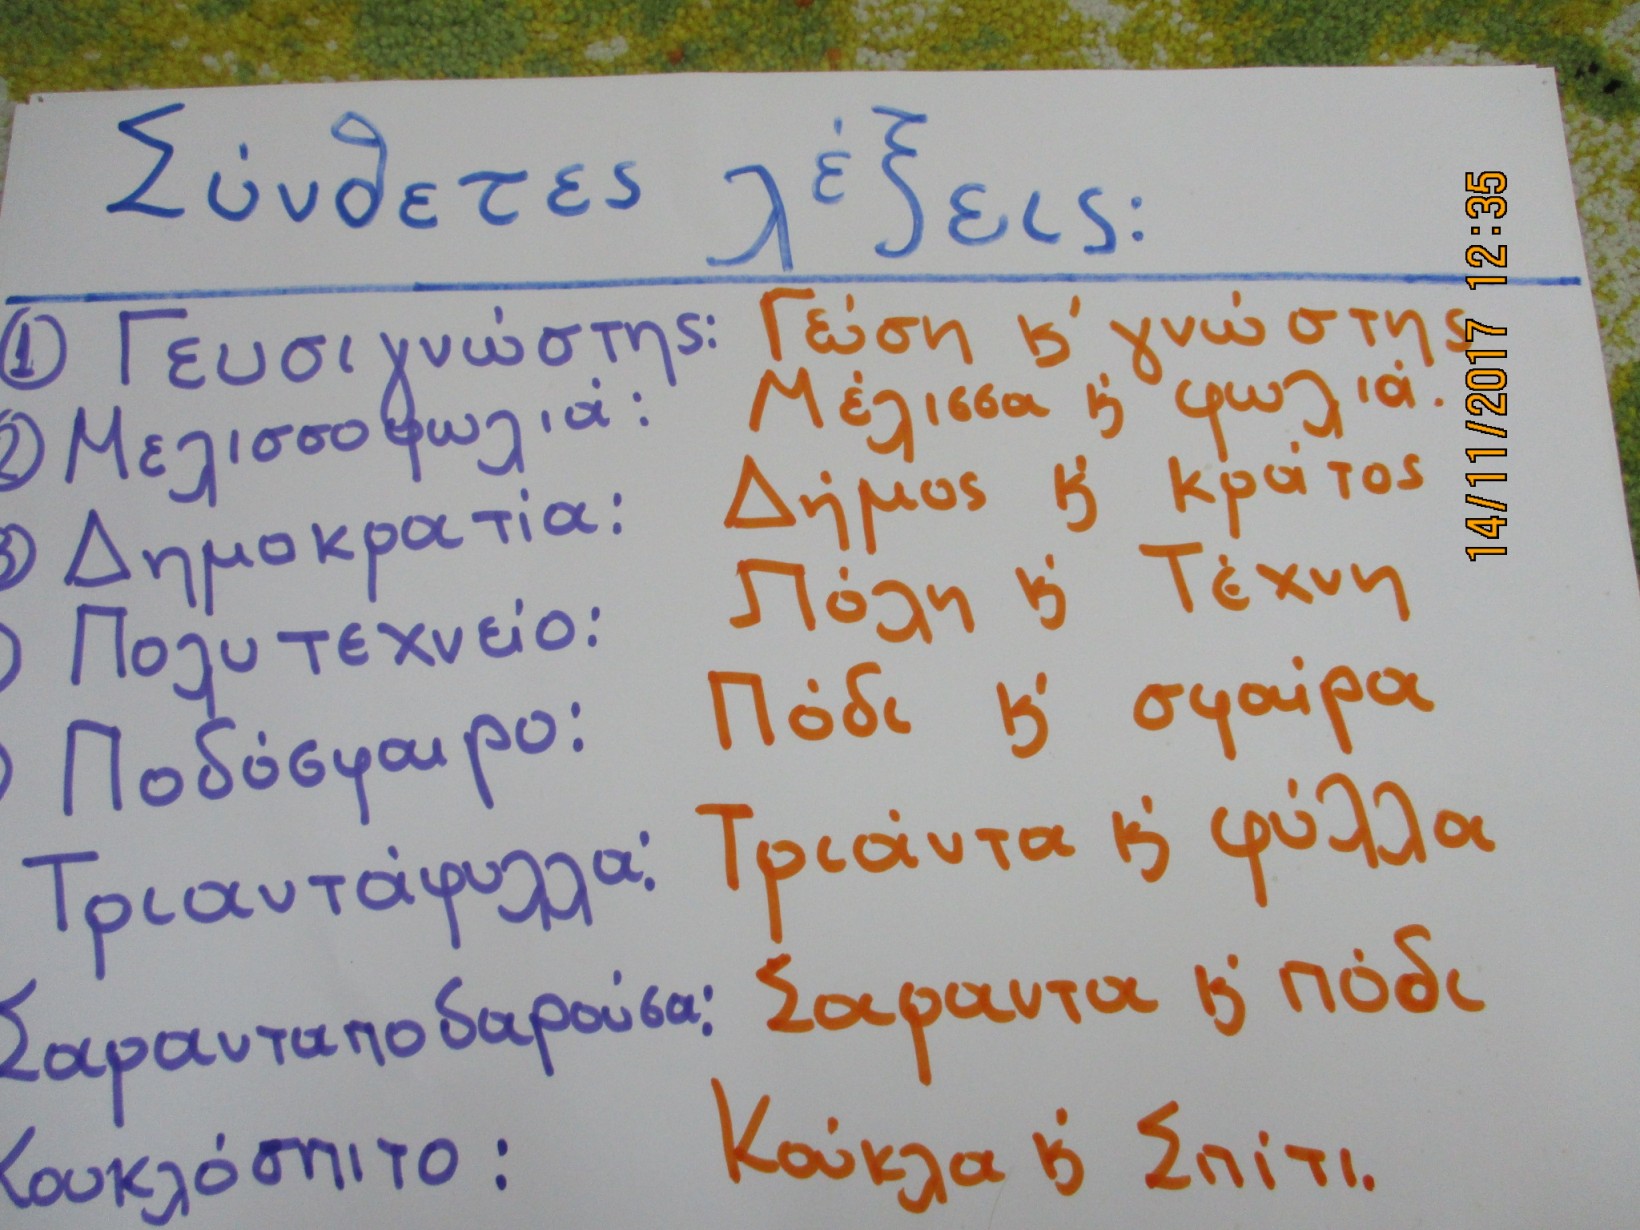 Σύνθετες λέξεις:
① Γευσιγνώστης: Γεύση κ' γνώστης
2 Μελισσοφωλιά: Μέλισσα κ' φωλιά.
3 Δημοκρατία: Δήμος κ' κράτος
Πολυτεχνείο: Πόλη κ' Τέχνη
Ποδόσφαιρο: Πόδι κ' σφαίρα
Τριαντάφυλλα: Τριάντα κ' φύλλα
Σαρανταποδαρούσα: Σαράντα κ' πόδι
Κουκλόσπιτο: Κούκλα κ' Σπίτι.
14/11/2017 12:35